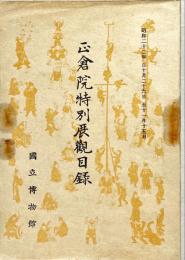 昭和二十二年自十月二十九日至十一月十五日
正倉院特別展觀目錄
國立博物館